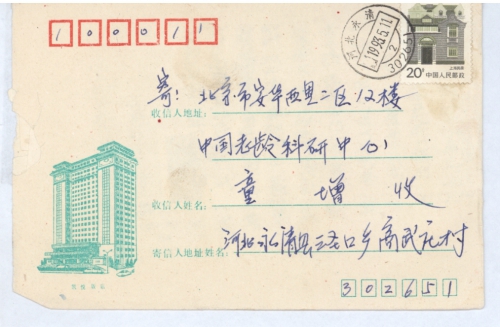 100011
河北永清
1993.5.11
2
302651
上海民居
20分 中国人民邮政
寄：北京市安华西里二区12楼
收信人地址：
中国老龄科研中心
童 增 收
收信人姓名：
河北永清县三圣口乡高武庄村
寄信人地址姓名：
302651